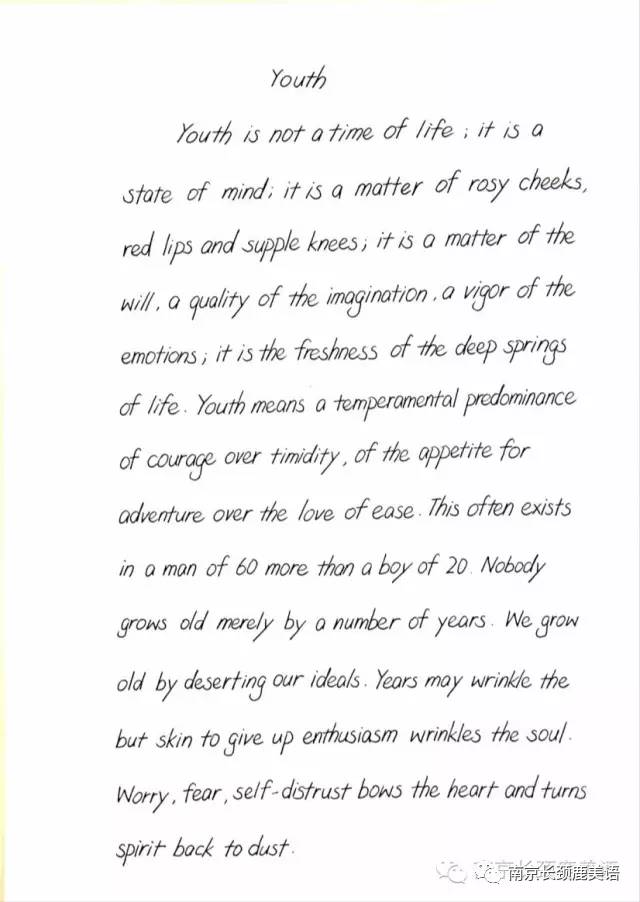 Youth
Youth is not a time of life; it is a
state of mind; it is a matter of rosy cheeks,
red lips and supple knees; it is a matter of the
will, a quality of the imagination, a vigor of the
emotions; it is the freshness of the deep springs
of life. Youth means a temperamental predominance
of courage over timidity, of the appetite for
adventure over the love of ease. This often exists
in a man of 60 more than a boy of 20. Nobody
grows old merely by a number of years. We grow
old by deserting our ideals. Years may wrinkle the
but skin to give up enthusiasm wrinkles the soul.
Worry, fear, self-distrust bows the heart and turns
spirit back to dust.
南京长颈鹿美语